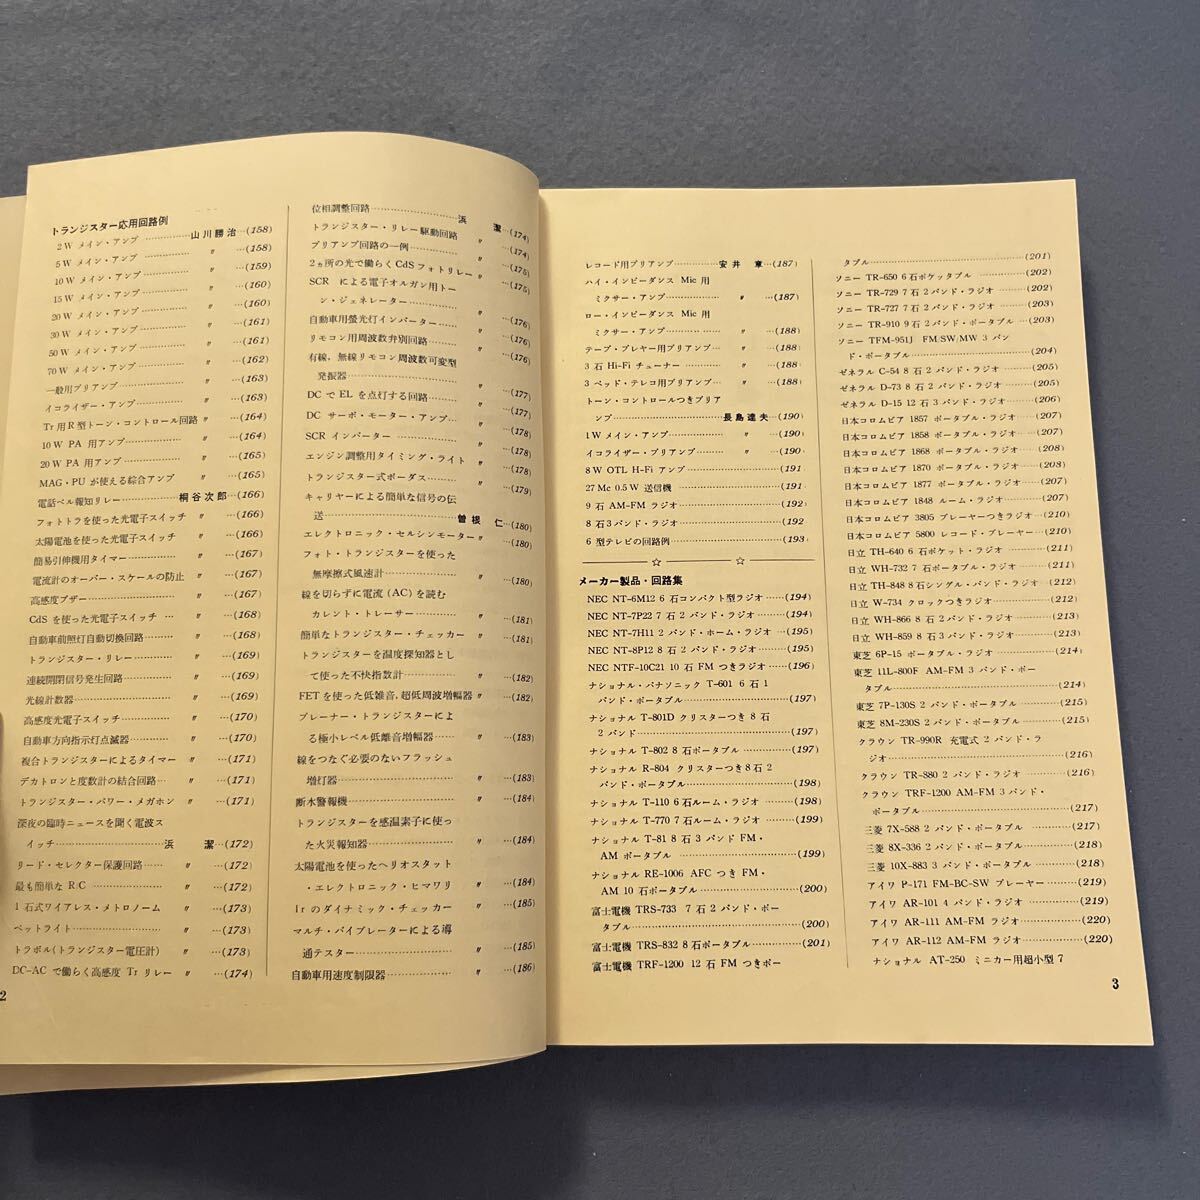 トランジスター応用回路例
2W メイン・アンプ……………山川勝治…(158)
5W メイン・アンプ…………… 〃 …(158)
10W メイン・アンプ…………… 〃 …(159)
15W メイン・アンプ…………… 〃 …(160)
20W メイン・アンプ…………… 〃 …(160)
30W メイン・アンプ…………… 〃 …(161)
50W メイン・アンプ…………… 〃 …(161)
70W メイン・アンプ…………… 〃 …(162)
一般用プリアンプ……………… 〃 …(163)
イコライザー・アンプ………… 〃 …(163)
Tr用R型トーン・コントロール回路 〃 …(164)
10W PA 用アンプ……………… 〃 …(164)
20W PA 用アンプ……………… 〃 …(165)
MAG・PUが使える綜合アンプ 〃 …(165)
電話ベル報知リレー…………桐谷次郎…(166)
フォトトラを使った光電子スイッチ 〃 …(166)
太陽電池を使った光電子スイッチ 〃 …(166)
簡易引伸機用タイマー………… 〃 …(167)
電流計のオーバー・スケールの防止 〃 …(167)
高感度ブザー…………………… 〃 …(167)
CdS を使った光電子スイッチ … 〃 …(168)
自動車前照灯自動切換回路……… 〃 …(168)
トランジスター・リレー………… 〃 …(169)
連続開閉信号発生回路…………… 〃 …(169)
光線計数器………………………… 〃 …(169)
高感度光電子スイッチ…………… 〃 …(170)
自動車方向指示灯点滅器………… 〃 …(170)
複合トランジスターによるタイマー 〃 …(171)
デカトロンと度数計の結合回路… 〃 …(171)
トランジスター・パワー・メガホン 〃 …(171)
深夜の臨時ニュースを聞く電波ス
イッチ……………………………浜 潔…(172)
リード・セレクター保護回路…… 〃 …(172)
最も簡単な R/C………………… 〃 …(172)
1石式ワイアレス・メトロノーム 〃 …(173)
ペットライト……………………… 〃 …(173)
トラボル(トランジスター電圧計) 〃 …(173)
DC-AC で働らく高感度 Tr リレー 〃 …(174)
2
位相調整回路……………………浜 潔…(174)
トランジスター・リレー駆動回路 〃 …(174)
プリアンプ回路の一例…………… 〃 …(175)
2ヵ所の光で働らくCdSフォトリレー 〃 …(175)
SCR による電子オルガン用トー
ン・ジェネレーター……………… 〃 …(176)
自動車用螢光灯インバーター…… 〃 …(176)
リモコン用周波数弁別回路……… 〃 …(176)
有線,無線リモコン周波数可変型
発振器……………………………… 〃 …(177)
DCでELを点灯する回路……… 〃 …(177)
DC サーボ・モーター・アンプ… 〃 …(178)
SCR インバーター ……………… 〃 …(178)
エンジン調整用タイミング・ライト 〃 …(178)
トランジスター式ボーダス……… 〃 …(179)
キャリヤーによる簡単な信号の伝
送…………………………………曽根 仁…(180)
エレクトロニック・セルシンモーター 〃 …(180)
フォト・トランジスターを使った
無摩擦式風速計…………………… 〃 …(180)
線を切らずに電流 (AC) を読む
カレント・トレーサー…………… 〃 …(181)
簡単なトランジスター・チェッカー 〃 …(181)
トランジスターを温度探知器とし
て使った不快指数計……………… 〃 …(182)
FETを使った低雑音,超低周波増幅器 〃 …(182)
プレーナー・トランジスターによ
る極小レベル低雑音増幅器……… 〃 …(183)
線をつなぐ必要のないフラッシュ
増灯器……………………………… 〃 …(183)
断水警報機………………………… 〃 …(184)
トランジスターを感温素子に使っ
た火災報知器……………………… 〃 …(184)
太陽電池を使ったヘリオスタット
・エレクトロニック・ヒマワリ 〃 …(184)
Irのダイナミック・チェッカー 〃 …(185)
マルチ・バイブレーターによる導
通テスター………………………… 〃 …(185)
自動車用速度制限器……………… 〃 …(186)
レコード用プリアンプ…………安井 章…(187)
ハイ・インピーダンス Mic 用
ミクサー・アンプ………………… 〃 …(187)
ロー・インピーダンス Mic 用
ミクサー・アンプ………………… 〃 …(188)
テープ・プレヤー用プリアンプ… 〃 …(188)
3石 Hi-Fi チューナー…………… 〃 …(188)
3ヘッド・テレコ用プリアンプ… 〃 …(188)
トーン・コントロールつきプリア
ンプ………………………………長島達夫…(190)
1W メイン・アンプ……………… 〃 …(190)
イコライザー・プリアンプ……… 〃 …(190)
8W OTL H-Fi アンプ……………………(191)
27 Mc 0.5W 送信機………………………(191)
9石 AM-FM ラジオ………………………(192)
8石3バンド・ラジオ……………………(192)
6 型テレビの回路例………………………(193)
☆ ☆
メーカー製品・回路集
NEC NT-6M12 6 石コンパクト型ラジオ……(194)
NEC NT-7P22 7 石 2 バンド・ラジオ………(194)
NEC NT-7H11 2 バンド・ホーム・ラジオ…(195)
NEC NT-8P12 8 石 2 バンド・ラジオ………(195)
NEC NTF-10C21 10 石 FM つきラジオ……(196)
ナショナル・パナソニック T-601 6 石 1
バンド・ポータブル…………………………(197)
ナショナル T-801D クリスターつき 8 石
2 バンド………………………………………(197)
ナショナル T-802 8 石ポータブル…………(197)
ナショナル R-804 クリスターつき8石2
バンド・ポータブル…………………………(198)
ナショナル T-110 6 石ルーム・ラジオ……(198)
ナショナル T-770 7 石ルーム・ラジオ……(199)
ナショナル T-81 8 石 3 バンド FM・
AM ポータブル………………………………(199)
ナショナル RE-1006 AFC つき FM・
AM 10 石ポータブル…………………………(200)
富士電機 TRS-733 7 石 2 バンド・ポー
タブル…………………………………………(200)
富士電機 TRS-832 8 石ポータブル…………(201)
富士電機 TRF-1200 12 石 FM つきポー
タブル…………………………………………(201)
ソニー TR-650 6 石ポケッタブル…………(202)
ソニー TR-729 7 石 2 バンド・ラジオ……(202)
ソニー TR-727 7 石 2 バンド・ラジオ……(203)
ソニー TR-910 9 石 2 バンド・ポータブル…(203)
ソニー TFM-951J FM/SW/MW 3 バン
ド・ポータブル………………………………(204)
ゼネラル C-54 8 石 2 バンド・ラジオ……(205)
ゼネラル D-73 8 石 2 バンド・ラジオ……(205)
ゼネラル D-15 12 石 3 バンド・ラジオ……(206)
日本コロムビア 1857 ポータブル・ラジオ…(207)
日本コロムビア 1858 ポータブル・ラジオ…(208)
日本コロムビア 1868 ポータブル・ラジオ…(208)
日本コロムビア 1870 ポータブル・ラジオ…(207)
日本コロムビア 1877 ポータブル・ラジオ…(207)
日本コロムビア 1848 ルーム・ラジオ………(207)
日本コロムビア 3805 プレーヤーつきラジオ(210)
日本コロムビア 5800 レコード・プレーヤー(210)
日立 TH-640 6 石ポケット・ラジオ………(211)
日立 WH-732 7 石ポータブル・ラジオ……(211)
日立 TH-848 8 石シングル・バンド・ラジオ(212)
日立 W-734 クロックつきラジオ……………(212)
日立 WH-866 8 石 2 バンド・ラジオ………(213)
日立 WH-859 8 石 3 バンド・ラジオ………(213)
東芝 6P-15 ポータブル・ラジオ……………(214)
東芝 11L-800F AM-FM 3 バンド・ポー
タブル…………………………………………(214)
東芝 7P-130S 2 バンド・ポータブル………(215)
東芝 8M-230S 2 バンド・ポータブル………(215)
クラウン TR-990R 充電式 2 バンド・ラ
ジオ……………………………………………(216)
クラウン TR-380 2 バンド・ラジオ………(216)
クラウン TRF-1200 AM-FM 3 バンド・
ポータブル……………………………………(217)
三菱 7X-588 2 バンド・ポータブル………(217)
三菱 8X-336 2 バンド・ポータブル………(218)
三菱 10X-883 3 バンド・ポータブル………(218)
アイワ P-171 FM-BC-SW プレーヤー……(219)
アイワ AR-101 4 バンド・ラジオ…………(219)
アイワ AR-111 AM-FM ラジオ……………(220)
アイワ AR-112 AM-FM ラジオ……………(220)
ナショナル AT-250 ミニカー用超小型 7
3